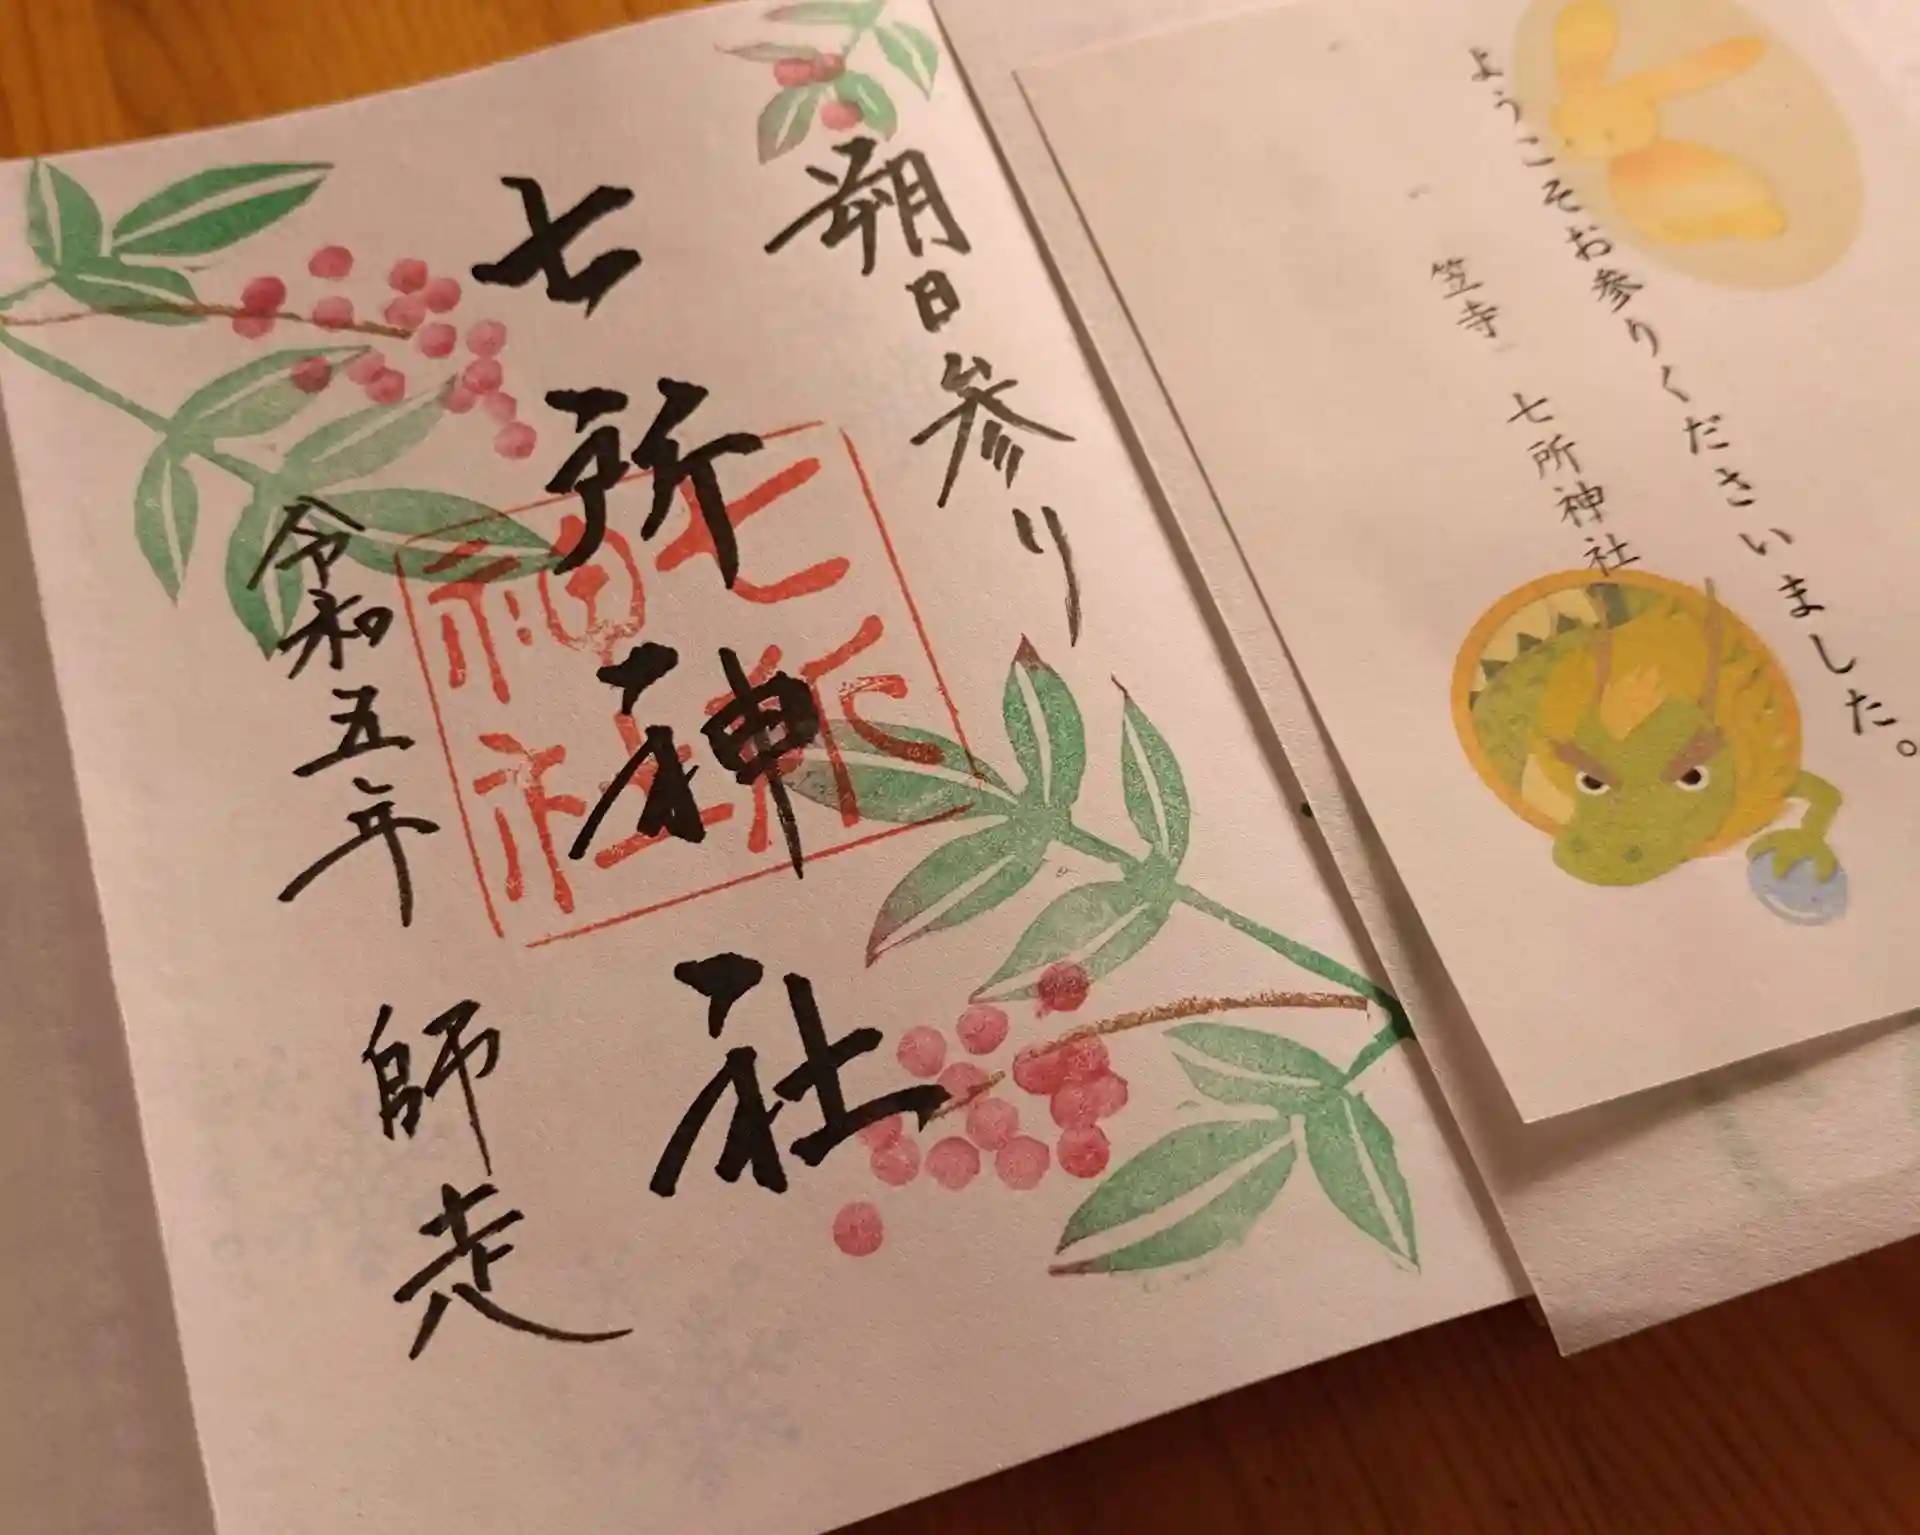 朔日参り
七所神社
七所神社
令和五年 師走
ようこそお参りくださいました。
笠寺 七所神社